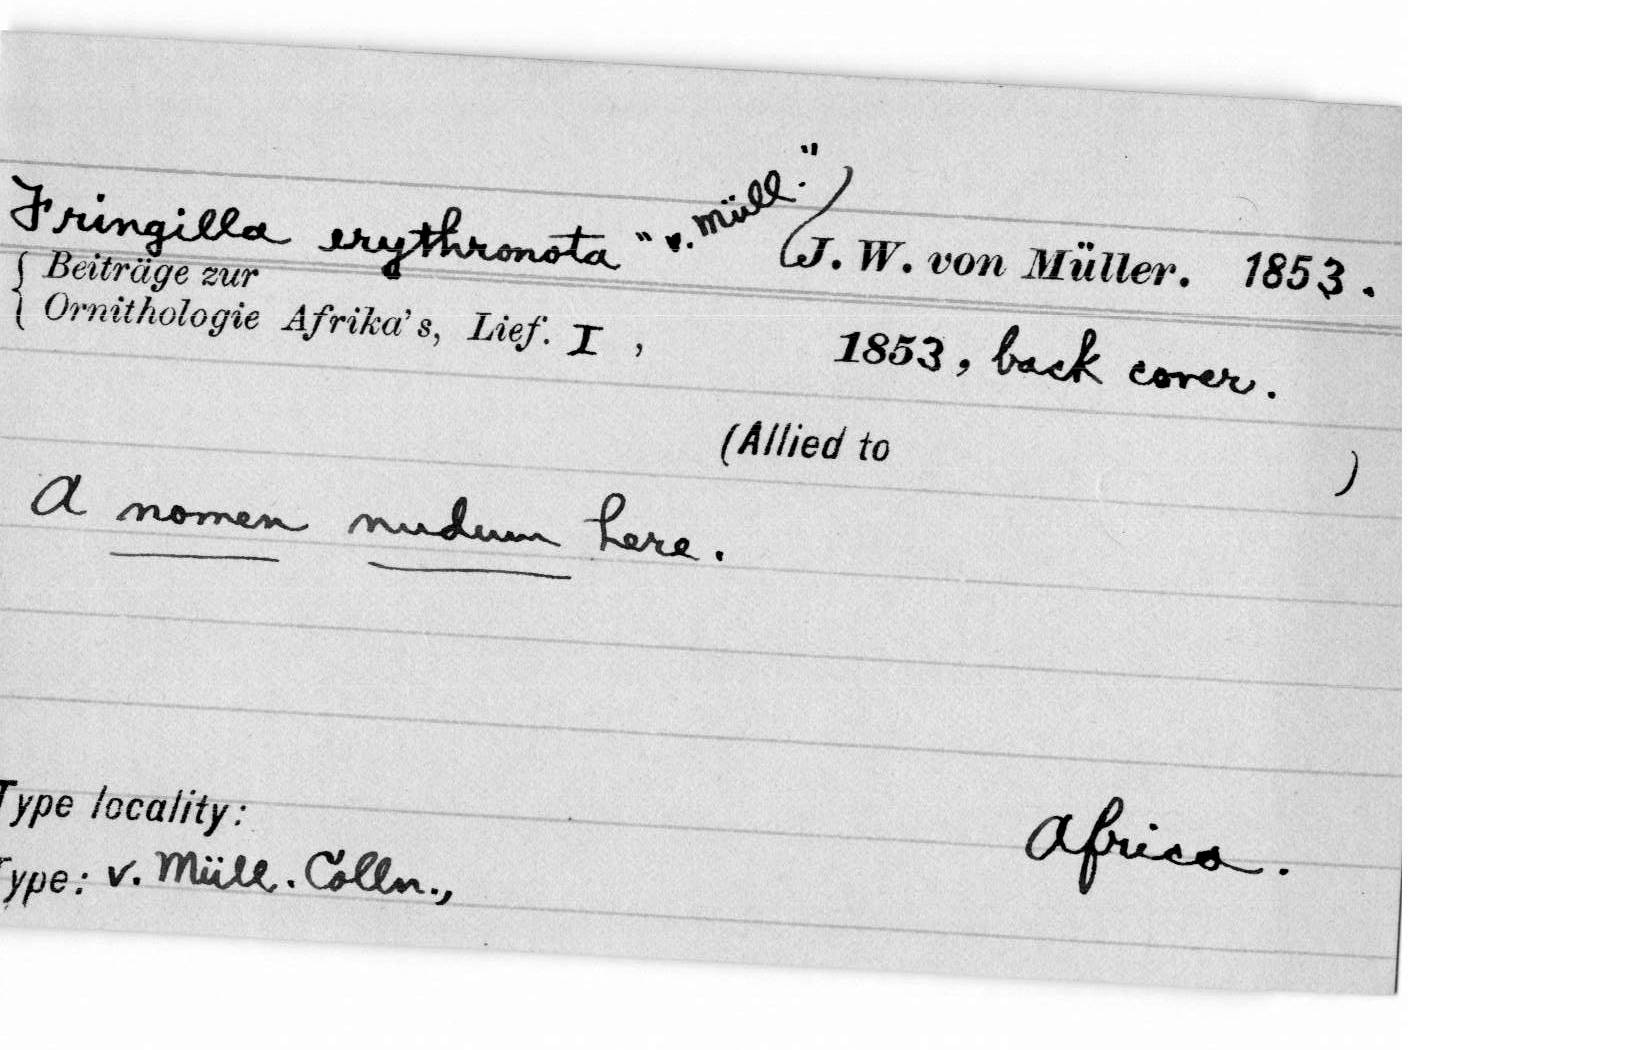 Fringilla erythronota "v. Müll." (J. W. von Müller. 1853.
{ Beiträge zur
{ Ornithologie Afrika's, Lief. I, 1853, back cover.
(Allied to )
A nomen nudum here.
Type locality: Africa.
Type: v. Müll. Colln.,